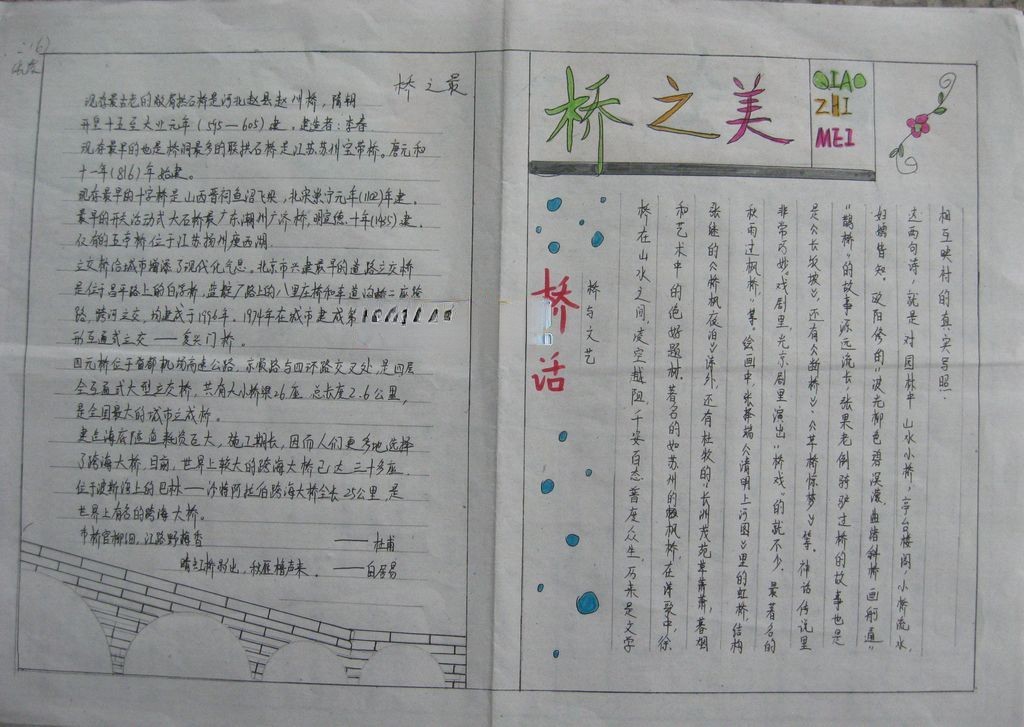 桥之最
现存最古老的敞肩拱石桥是河北赵县赵州桥，隋朝
开皇十五至大业元年（595—605）建，建造者：李春
现存最早的也是桥洞最多的联拱石桥是江苏苏州宝带桥。唐元和
十一年（816）年始建。
现存最早的十字桥是山西晋祠鱼沼飞梁，北宋崇宁元年（1102）年建。
最早的开关活动式大石桥是广东潮州广济桥，明宣德十年（1435）建。
仅有的五亭桥位于江苏扬州瘦西湖
立交桥给城市增添了现代化气息。北京市兴建最早的道路立交桥
是位于昌平路上的白浮桥，
路，跨河立交，均建成于1956年。1974年在城市建成第
形互通式立交——复兴门桥。
四元桥位于首都机场高速公路，京顺路与四环路交叉处，是四层
全互通式大型立交桥，共有大小桥梁26座，总长度2.6公里，
是全国最大的城市立交桥。
建造海底隧道耗资巨大，施工期长，因而人们更多地选择
了跨海大桥，目前，世界上较大的跨海大桥已达三十多座
位于波斯湾上的巴林——沙特阿拉伯跨海大桥全长25公里，是
世界上有名的跨海大桥。
市桥官柳细，江路野梅香 ——杜甫
晴虹桥影出，秋雁橹声来。——白居易
桥之美
QIAO
ZHI
MEI
桥话
桥与文艺
桥在山水之间，凌空越阻，千姿百态普度众生，历来是文学
和艺术中的绝好题材。著名的如苏州的枫桥，在诗歌中，除
张继的《枫桥夜泊》诗外，还有杜牧的"长洲茂苑草萧萧，暮烟
秋雨过枫桥"等。绘画中，张择端《清明上河图》里的虹桥，结构
非常巧妙。戏剧里，光京剧里演出"桥戏"的就不少，最著名的
是《长坂坡》，还有《断桥》、《草桥惊梦》等。神话传说里
"鹊桥"的故事源远流长，张果老倒骑驴过桥的故事也是
妇孺皆知。欧阳修的"波光柳色碧溟濛，曲渚斜桥画舸通"
这两句诗，就是对园林中山水小桥，亭台楼阁，小桥流水，
相互映衬的真实写照.